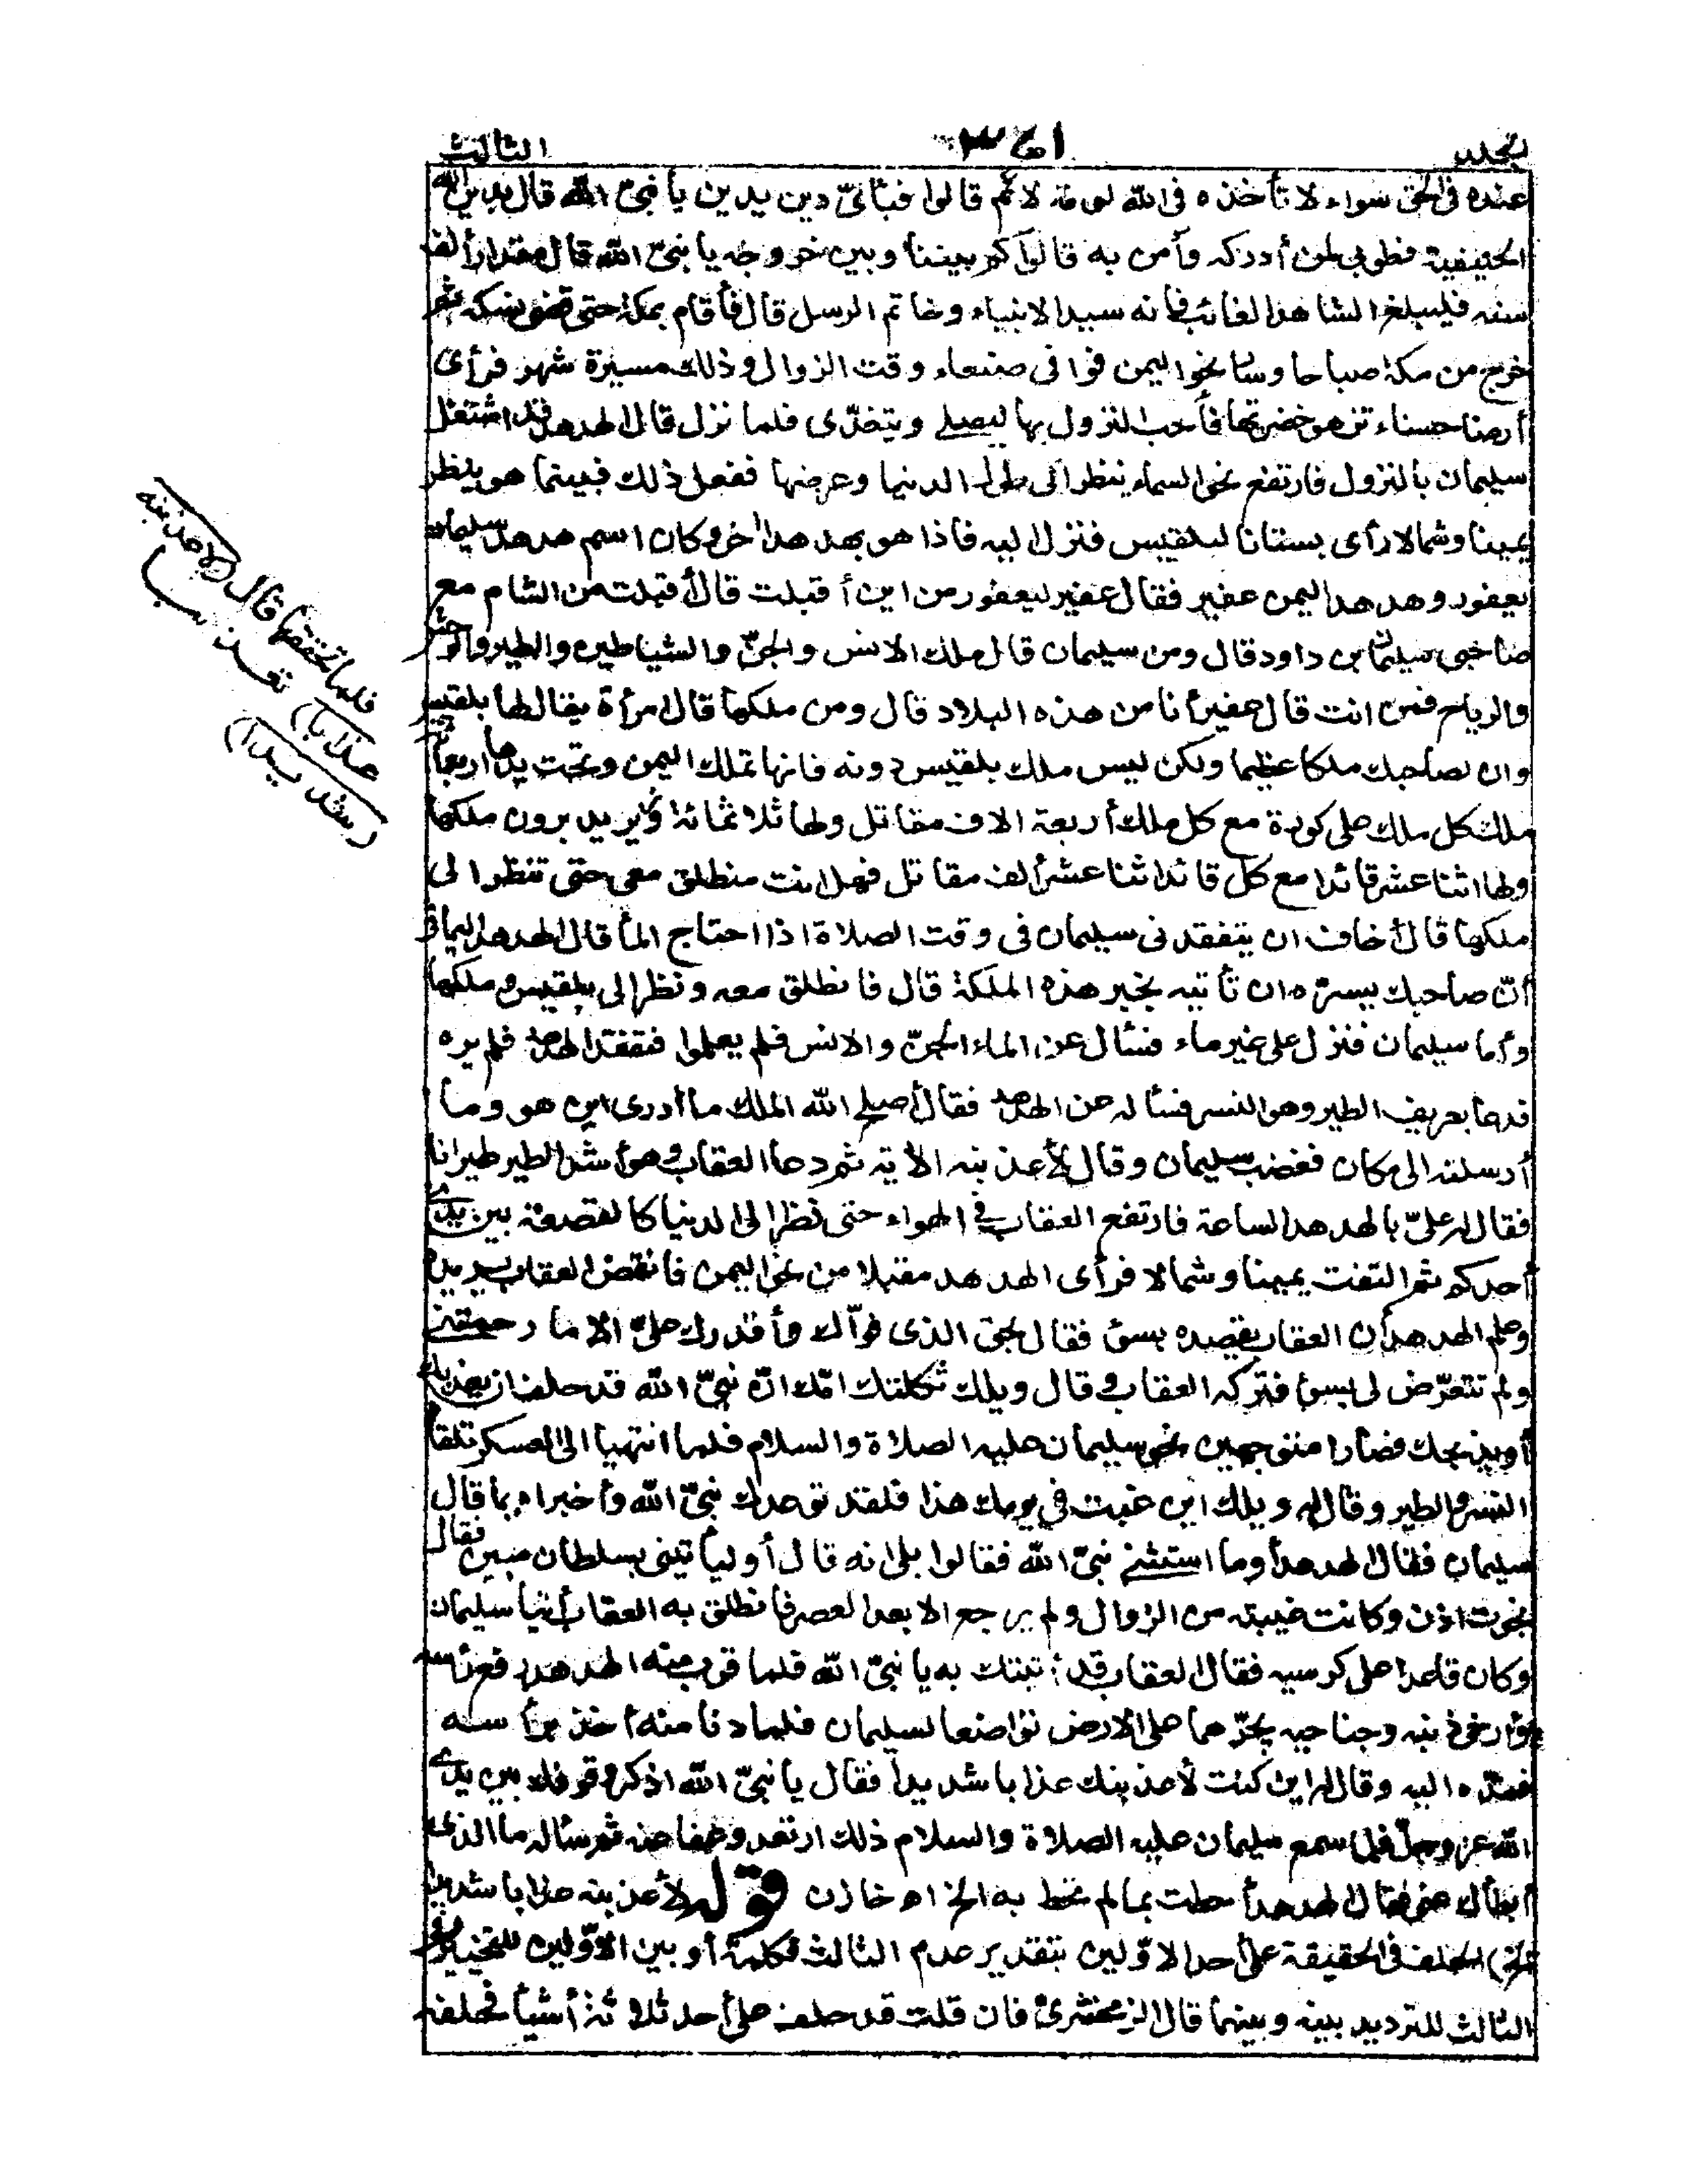 الجلد ٣٤١ الثالث
عنده فى الحق سواء لا تأخذه فى الله لومة لائم قالوا فبأىّ دين يدين يا نبىّ الله قال بدين الله
الحنيفية فطوبى لمن أدركه وآمن به قالوا كم بيننا وبين خروجه يا نبىّ الله قال مقدار ألف
سنة فليبلغ الشاهد الغائب فانه سيد الانبياء وخاتم الرسل قال فأقام بمكة حتى قضى نسكه ثم
خرج من مكة صباحا وسار نحو اليمن فوافى صنعاء وقت الزوال وذلك مسيرة شهر فرأى
أرضا حسناء تزهو خضرتها فأحب النزول بها ليصلى ويتغدّى فلما نزل قال الهدهد قد اشتغل
سليمان بالنزول فارتفع نحو السماء ينظر الى طول الدنيا وعرضها ففعل ذلك فبينما هو ينظر
يمينا وشمالا رأى بستانا لبلقيس فنزل اليه فاذا هو بهدهد اخر وكان اسم هدهد سليمان
يعفور وهدهد اليمن عفير فقال عفير ليعفور من اين أقبلت قال أقبلت من الشام مع
صاحبى سليمان بن داود قال ومن سليمان قال ملك الانس والجنّ والشياطين والطير والوحش
والرياح فمن انت قال عفير أنا من هذه البلاد قال ومن ملكها قال امرأة يقال لها بلقيس
وان لصاحبك ملكا عظيما ولكن ليس ملك بلقيس دونه فانها تملك اليمن وتحت يدها اربعمائة
ملك كل ملك على كورة مع كل ملك أربعة الاف مقاتل ولها ثلاثمائة وزير يدبرون ملكها
ولها اثنا عشر قائدا مع كل قائد اثنا عشر ألف مقاتل فهل انت منطلق معى حتى تنظر الى
ملكها قال أخاف ان يتفقدنى سليمان فى وقت الصلاة اذا احتاج الماء قال الهدهد اليمانى
انّ صاحبك يسرّه ان تأتيه بخبر هذه الملكة قال فانطلق معه ونظر إلى بلقيس وملكها
وأما سليمان فنزل على غير ماء فسأل عن الماء الجنّ والانس فلم يعلموا فتفقد الهدهد فلم يره
فدعا بعريف الطير وهو النسر فسأله عن الهدهد فقال أصلح الله الملك ما أدرى اين هو وما
أرسلته الى مكان فغضب سليمان وقال لأعذبنه الأية ثم دعا العقاب وهو أشد الطير طيرانا
فقال له علىّ بالهدهد الساعة فارتفع العقاب فى الهواء حتى نظر إلى الدنيا كالقصعة بين يدى
أحدكم ثم التفت يمينا وشمالا فرأى الهدهد مقبلا من نحو اليمن فانقض العقاب يريده
وعلم الهدهد أن العقاب يقصده بسوء فقال بحق الذى قوّاك وأقدرك علىّ الا ما رحمتنى
ولم تتعرّض لى بسوء فتركه العقاب وقال ويلك ثكلتك امّك انّ نبىّ الله قد حلف ان يعذبك
أو يذبحك فصارا متوجهين نحو سليمان عليه الصلاة والسلام فلما انتهيا الى العسكر تلقاه
النسر والطير وقالوا له ويلك اين غبت فى يومك هذا فلقد توعدك نبىّ الله وأخبراه بما قال
سليمان فقال الهدهد أوما استثنى نبىّ الله فقالوا بلى انه قال أو ليأتينى بسلطان مبين فقال
نجوت اذن وكانت غيبته من الزوال ولم يرجع الا بعد العصر فانطلق به العقاب فأتيا سليمان
وكان قاعدا على كرسيه فقال العقاب قد أتيتك به يا نبىّ الله فلما قرب منه الهدهد رفع رأسه
وأرخى ذنبه وجناحيه يجرّهما على الارض تواضعا لسليمان فلما دنا منه أخذ برأسه
فمدّه اليه وقال له اين كنت لأعذبنك عذابا شديدا فقال يا نبىّ الله اذكر وقوفك بين يدى
الله عز وجلّ فلما سمع سليمان عليه الصلاة والسلام ذلك ارتعد وعفا عنه ثم سأله ما الذى
أبطأك عنى فقال الهدهد أحطت بما لم تحط به الخ اه خازن قوله لأعذبنه عذابا شديدا
الخ) الحلف فى الحقيقة على أحد الاوّلين بتقدير عدم الثالث فكلمة أو بين الأوّلين للتخيير وفى
الثالث للترديد بينه وبينهما قال الزمخشرىّ فان قلت قد حلف على أحد ثلاثة أشيأ فحلفه
فلما تحققها قال (لأعذبنه
عذابا) تعذيبا
(شديدا)